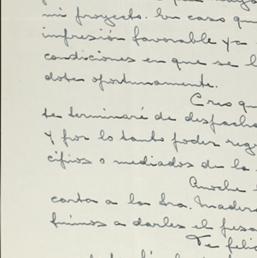 mi proyecto. En caso que
impresión favorable ya
condiciones en que se l
dotes oportunamente.
Creo que
te terminaré de despacha
y por lo tanto poder reg
cipios o mediados de la
Anoche
carta a la Sra. Madero
fuimos a darles el pesa
Te feli